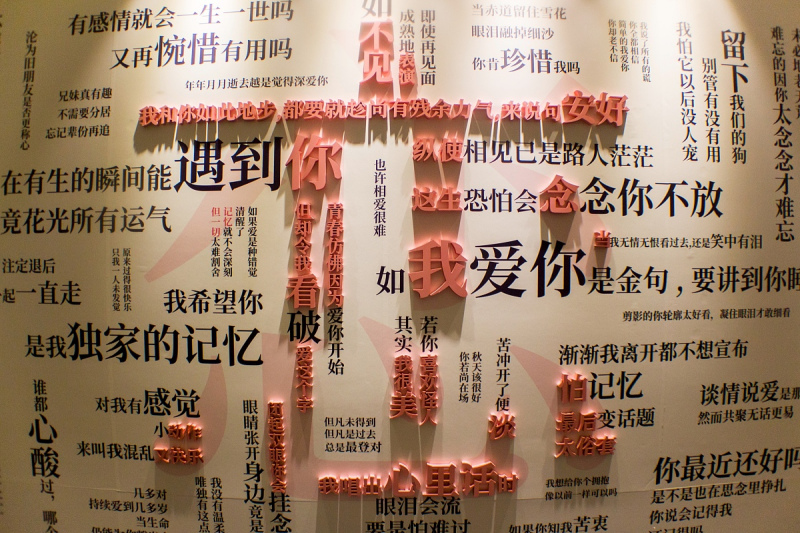 有感情就会一生一世吗
又再惋惜有用吗
年年月月逝去越是觉得深爱你
沦为旧朋友是否更称心
兄妹真有趣
不需要分居
忘记辈份再追
如不见
成熟地表演
即使再见面
当赤道留住雪花
眼泪融掉细沙
你肯珍惜我吗
我怕它以后没人宠
别管有没有用
留下我们的狗
难忘的因你太念念才难忘
我和你如此地步,都要就趁向有残余力气,来说句安好
在有生的瞬间能遇到你
竟花光所有运气
纵使相见已是路人茫茫
这生恐怕会念念你不放
也许相爱很难
如果爱是种错觉
清醒了
记忆就不会深刻
但一切太难割舍
原来过得很快乐
只我一人未发觉
但却令我看破爱这个字
青春仿佛因为爱你开始
我无情无恨看过去,还是笑中有泪
如我爱你是金句,要讲到你睡
注定退后
一起一直走
我希望你
剪影的你轮廓太好看,凝住眼泪才敢细看
是我独家的记忆
其实我很美
若你喜欢怪人
秋天该很好
你若尚在场
苦冲开了便淡
渐渐我离开都不想宣布
怕记忆
最后变话题
大俗套
谈情说爱是那
然而共聚无话更易
谁都心酸过,哪个
对我有感觉
来叫我混乱
眼睛张开身边竟是
挂念
但凡未得到
但凡是过去
总是最登对
我唱出心里话时
眼泪会流
要是怕难过
我想给你个拥抱
像以前一样可以吗
你最近还好吗
是不是也在思念里挣扎
你说会记得我
几多对
持续爱到几多岁
当生命
我没有温柔
唯独有这点
如果你知我苦衷